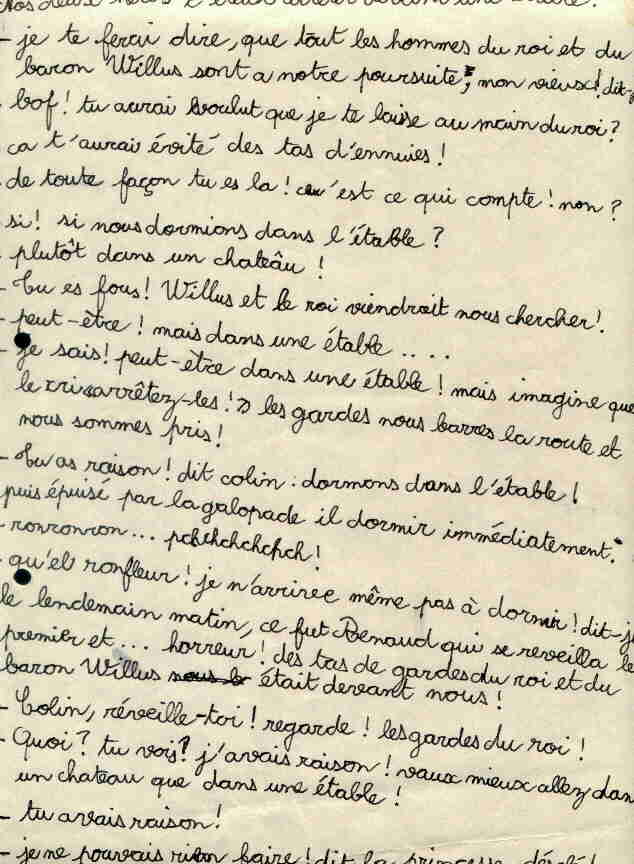 - je te ferai dire, que tout les hommes du roi et du
baron Willus sont a notre poursuite, mon vieux! dit-
bof! tu aurai voulut que je te laisse au main du roi?
ca t'aurai évité des tas d'ennuies!
de toute façon tu es la! c'est ce qui compte! non?
si! si nous dormions dans l'étable?
plutôt dans un chateâu!
- Tu es fous! Willus et le roi viendrait nous chercher!
- peut-être! mais dans une étable ....
- je sais! peut-être dans une étable! mais imagine que
le cri arrêtez-les!» les gardes nous barres la route et
nous sommes pris!
- Tu as raison! dit colin: dormons dans l'étable!
puis épuisé par la galopade il dormir immédiatement.
- ronronron... pchchchchch!
- qu'el ronfleur! je n'arrivee même pas à dormir! dit-j
le lendemain matin, ce fut Renaud qui se reveilla le
premier et... horreur! des tas de gardes du roi et du
baron Willus était devant nous!
- Colin, réveille-toi! regarde! les gardes du roi!
- Quoi? tu vois? j'avais raison! vaux mieux allez dan
un chateau que dans une étable!
- tu avais raison!
- je ne pouvais rien faire! dit la princesse